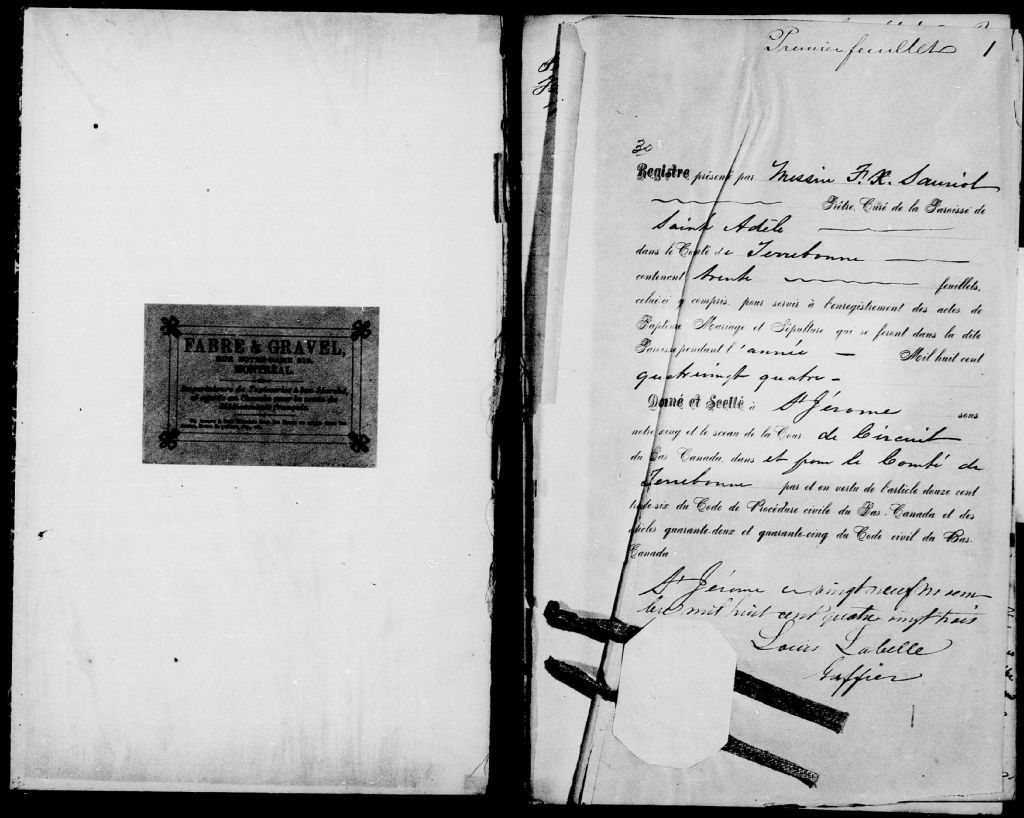 FABRE & GRAVEL,
RUE NOTRE-DAME 219
MONTRÉAL.
Premier feuillet 1
30
Registre présenté par Messire F. X. Sauriol
Prêtre, Curé de la Paroisse de
Sainte Adèle
dans le Comté de Terrebonne
contenant trente feuillets,
celui-ci y compris, pour servir à l'enregistrement des actes de
Baptême Mariage et Sépulture qui se feront dans la dite
Paroisse pendant l'année Mil huit cent
quatrevingt quatre -
Donné et Scellé à St Jérome sous
notre seing et le sceau de la Cour de Circuit
du Bas Canada, dans et pour le Comté de
Terrebonne par et en vertu de l'article douze cent
trente-six du Code de Procédure civile du Bas-Canada et des
articles quarante-deux et quarante-cinq du Code civil du Bas-
Canada
St Jérome ce vingt neuf novem
bre mil huit cent quatre vingt trois
Louis Labelle
Greffier